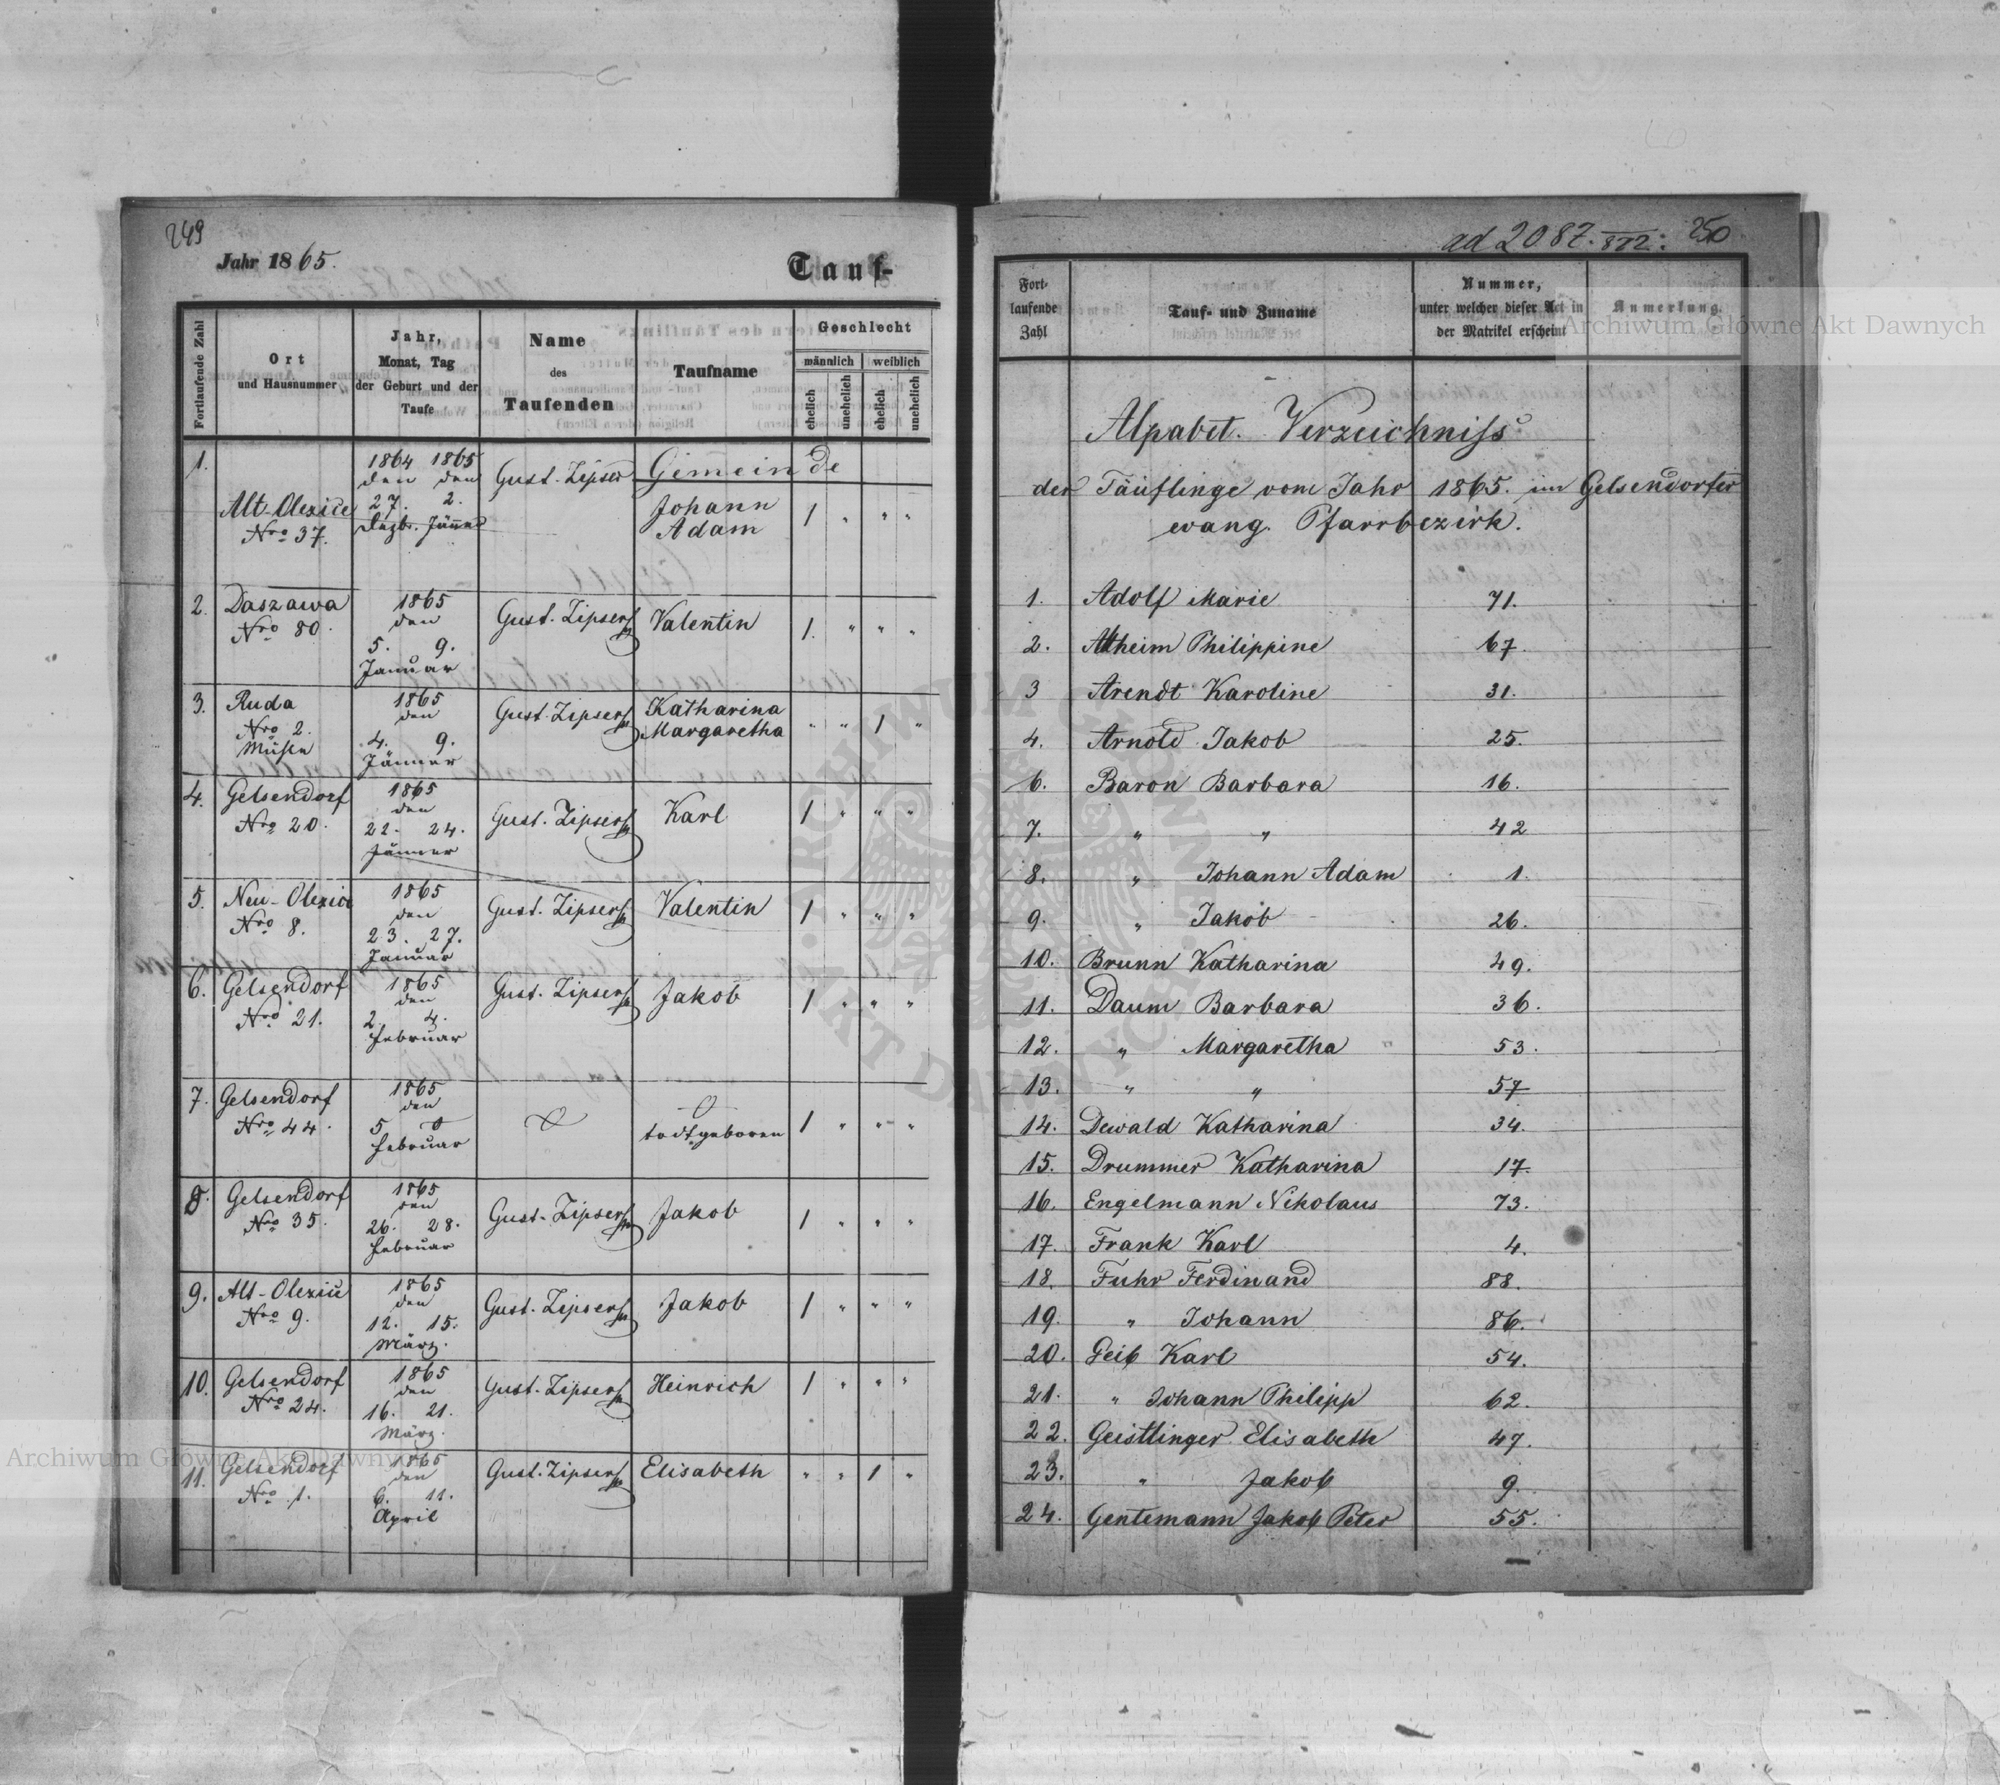 249
Jahr 1865.
Tauf-
Fortlaufende Zahl
Ort
und Hausnummer
Jahr,
Monat, Tag
der Geburt und der
Taufe
Name
des
Taufenden
Taufname
Geschlecht
männlich
weiblich
ehelich
unehelich
ehelich
unehelich
Gemeinde
1.
Alt-Olexice
Nro 37.
1864 1865
den den
27. 2.
Dezbr. Jänner
Gust. Zipser
Johann
Adam
1 " " "
2. Daszawa
Nro 80.
1865
den
5. 9.
Januar
Gust. Zipser
Valentin
1. " " "
3. Ruda
Nro 2.
1865
den
4. 9.
Jänner
Gust. Zipser
Katharina
Margaretha
" " 1 "
4. Gelsendorf
Nro 20.
1865
den
22. 24.
Jänner
Gust. Zipser
Karl
1 " " "
5. Neu-Olexice
Nro 8.
1865
den
23. 27.
Januar
Gust. Zipser
Valentin
1 " " "
6. Gelsendorf
Nro 21.
1865
den
2. 4.
Februar
Gust. Zipser
Jakob
1 " " "
7. Gelsendorf
Nro 44.
1865
den
5. 0
Februar
0
todtgeboren
1 " " "
8. Gelsendorf
Nro 35.
1865
den
26. 28.
Februar
Gust. Zipser
Jakob
1 " " "
9. Alt-Olexice
Nro 9.
1865
den
12. 15.
März.
Gust. Zipser
Jakob
1 " " "
10. Gelsendorf
Nro 24.
1865
den
16. 21.
März.
Gust. Zipser
Heinrich
1 " " "
11. Gelsendorf
Nro 1.
1865
den
6. 11.
April
Gust. Zipser
Elisabeth
" " 1 "
ad 2087. 872: 250
Fort-
laufende
Zahl
Tauf- und Zuname
Nummer,
unter welcher dieser Act in
der Matrikel erscheint
Anmerkung.
Alpabet. Verzeichniss
der Täuflinge vom Jahr 1865. im Gelsendorfer
evang. Pfarrbezirk.
1. Adolf Marie 71.
2. Altheim Philippine 67.
3 Arendt Karoline 31.
4. Arnold Jakob 25.
6. Baron Barbara 16.
7. " " 42
8. " Johann Adam 1.
9. " Jakob 26.
10. Brunn Katharina 49.
11. Daum Barbara 36.
12. " Margaretha 53.
13. " " 57
14. Dewald Katharina 34.
15. Drummer Katharina 17.
16. Engelmann Nikolaus 73.
17. Frank Karl 4.
18. Fuhr Ferdinand 88.
19. " Johann 86.
20. Geib Karl 54.
21. " Johann Philipp 62.
22. Geistlinger Elisabeth 47.
23. " Jakob 9.
24. Gentemann Jakob Peter 55.
Archiwum Główne Akt Dawnych
Archiwum Główne Akt Dawnych
ARCHIWUM GŁÓWNE AKT DAWNYCH